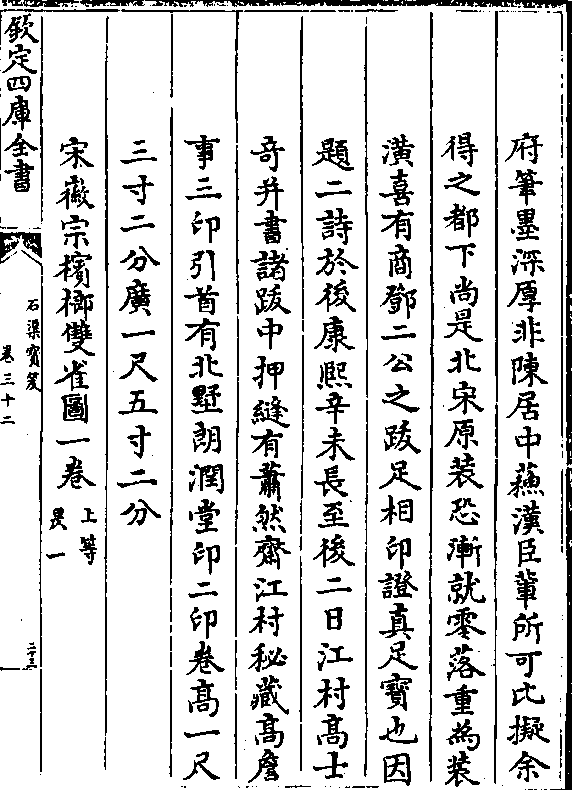 府筆墨深厚非陳居中蘓漢臣輩所可比擬余
得之都下尚是北宋原装恐漸就零落重為装
潢喜有商鄧二公之跋足相印證真足寶也因
題二詩於後康熙辛未長至後二日江村髙士
奇并書諸跋中押縫有蕭然齋江村秘藏髙詹
事三印引首有北墅朗潤堂印二印卷髙一尺
三寸二分廣一尺五寸二分
宋徽宗檳榔雙雀圖一卷 上等
欽定四庫全書
石渠寳笈
卷三十二